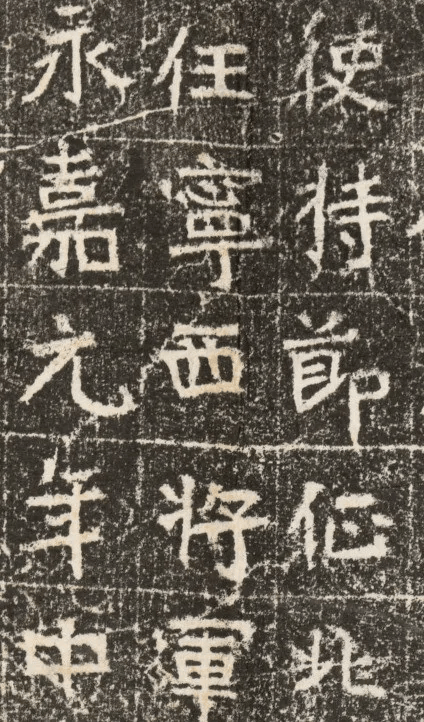 使持節征北
任寧西將軍
永嘉元年中